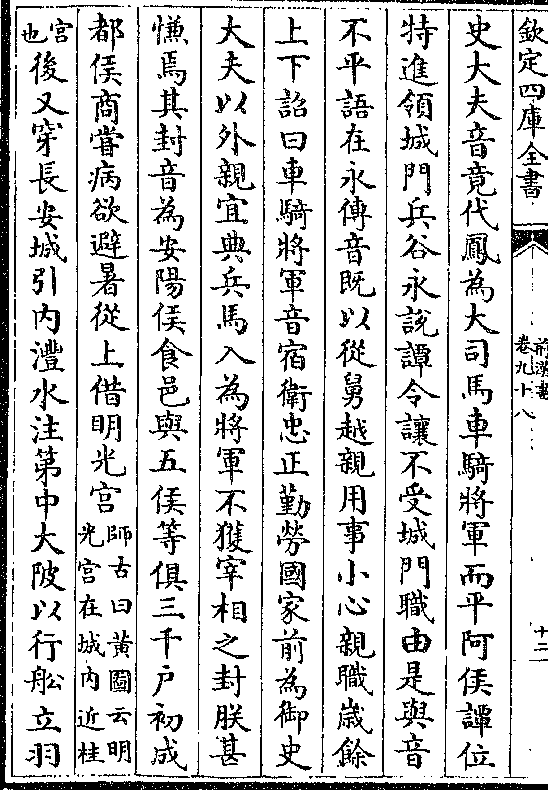 欽定四庫全書
前漢書
卷九十八
十二
史大夫音竟代鳳為大司馬車騎將軍而平阿侯譚位
特進領城門兵谷永說譚令讓不受城門職由是與音
不平語在永傳音既以從舅越親用事小心親職歲餘
上下詔曰車騎將軍音宿衛忠正勤勞國家前為御史
大夫以外親宜典兵馬入為將軍不獲宰相之封朕甚
慊焉其封音為安陽侯食邑與五侯等俱三千户初成
都侯商嘗病欲避暑從上借明光宮師古曰黄圖云明光宮在城内近桂
宮也後又穿長安城引内灃水注第中大陂以行舩立羽